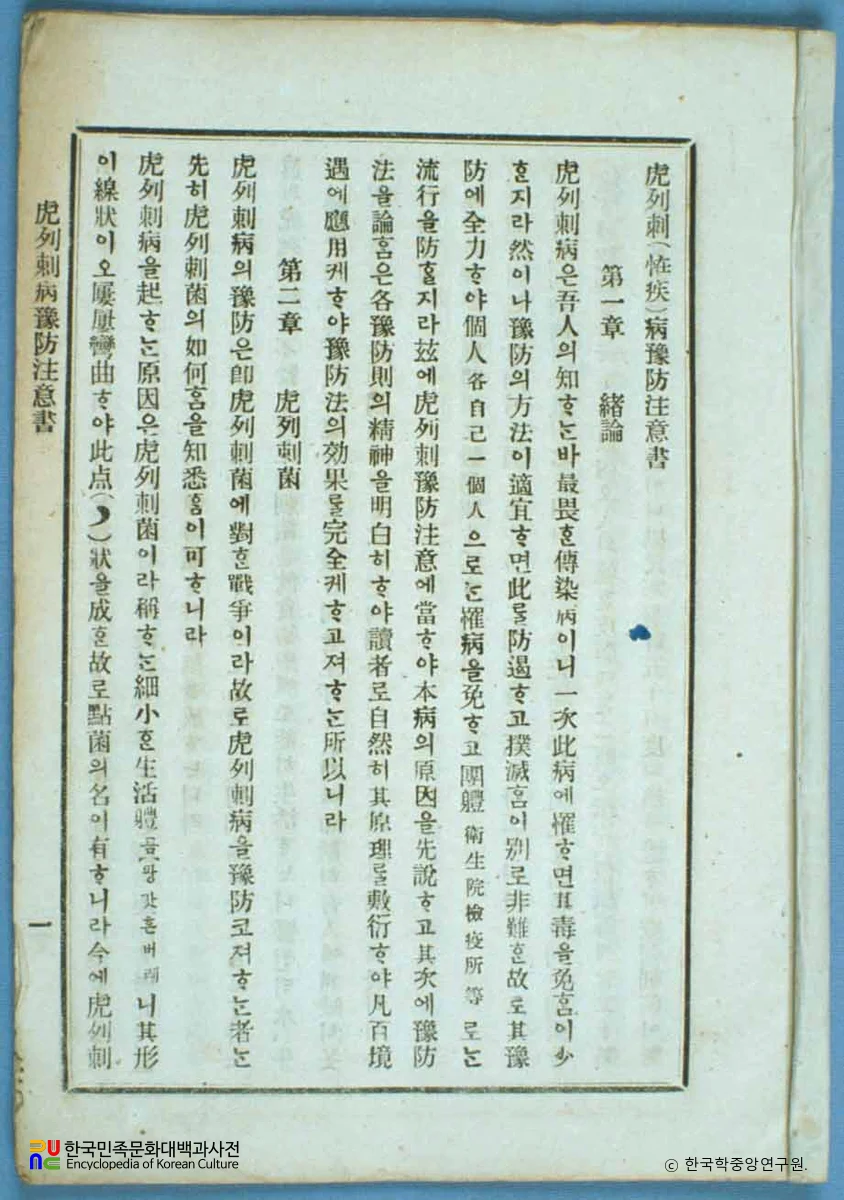 虎列刺(恠疾)病豫防注意書
第一章 緖論
虎列刺病은吾人의知ᄒᆞᄂᆞᆫ바最畏ᄒᆞᆫ傳染病이니一次此病에罹ᄒᆞ면其毒을免홈이少
ᄒᆞᆯ지라然이나豫防의方法이適宜ᄒᆞ면此ᄅᆞᆯ防遏ᄒᆞ고撲滅홈이別로非難ᄒᆞᆫ故로其豫
防에全力ᄒᆞ야個人各自己一個人으로ᄂᆞᆫ罹病을免ᄒᆞ고團體衛生院檢疫所等로ᄂᆞᆫ
流行을防ᄒᆞᆯ지라玆에虎列刺豫防注意에當ᄒᆞ야本病의原因을先說ᄒᆞ고其次에豫防
法을論홈은各豫防則의精神을明白히ᄒᆞ야讀者로自然히其原理ᄅᆞᆯ敷衍ᄒᆞ야凡百境
遇에應用케ᄒᆞ야豫防法의効果ᄅᆞᆯ完全케ᄒᆞ고져ᄒᆞᄂᆞᆫ所以니라
第二章 虎列刺菌
虎列刺病의豫防은卽虎列刺菌에對ᄒᆞᆫ戰爭이라故로虎列刺病을豫防코져ᄒᆞᄂᆞᆫ者ᄂᆞᆫ
先히虎列刺菌의如何홈을知悉홈이可ᄒᆞ니라
虎列刺病을起ᄒᆞᄂᆞᆫ原因은虎列刺菌이라稱ᄒᆞᄂᆞᆫ細小ᄒᆞᆫ生活體곰팡갓흔버레니其形
이線狀이오屢屢彎曲ᄒᆞ야此点(❜)狀을成ᄒᆞᆫ故로點菌의名이有ᄒᆞ니라今에虎列刺
虎列刺病豫防注意書
一
한국민족문화대백과사전
Encyclopedia of Korean Culture
© 한국학중앙연구원.